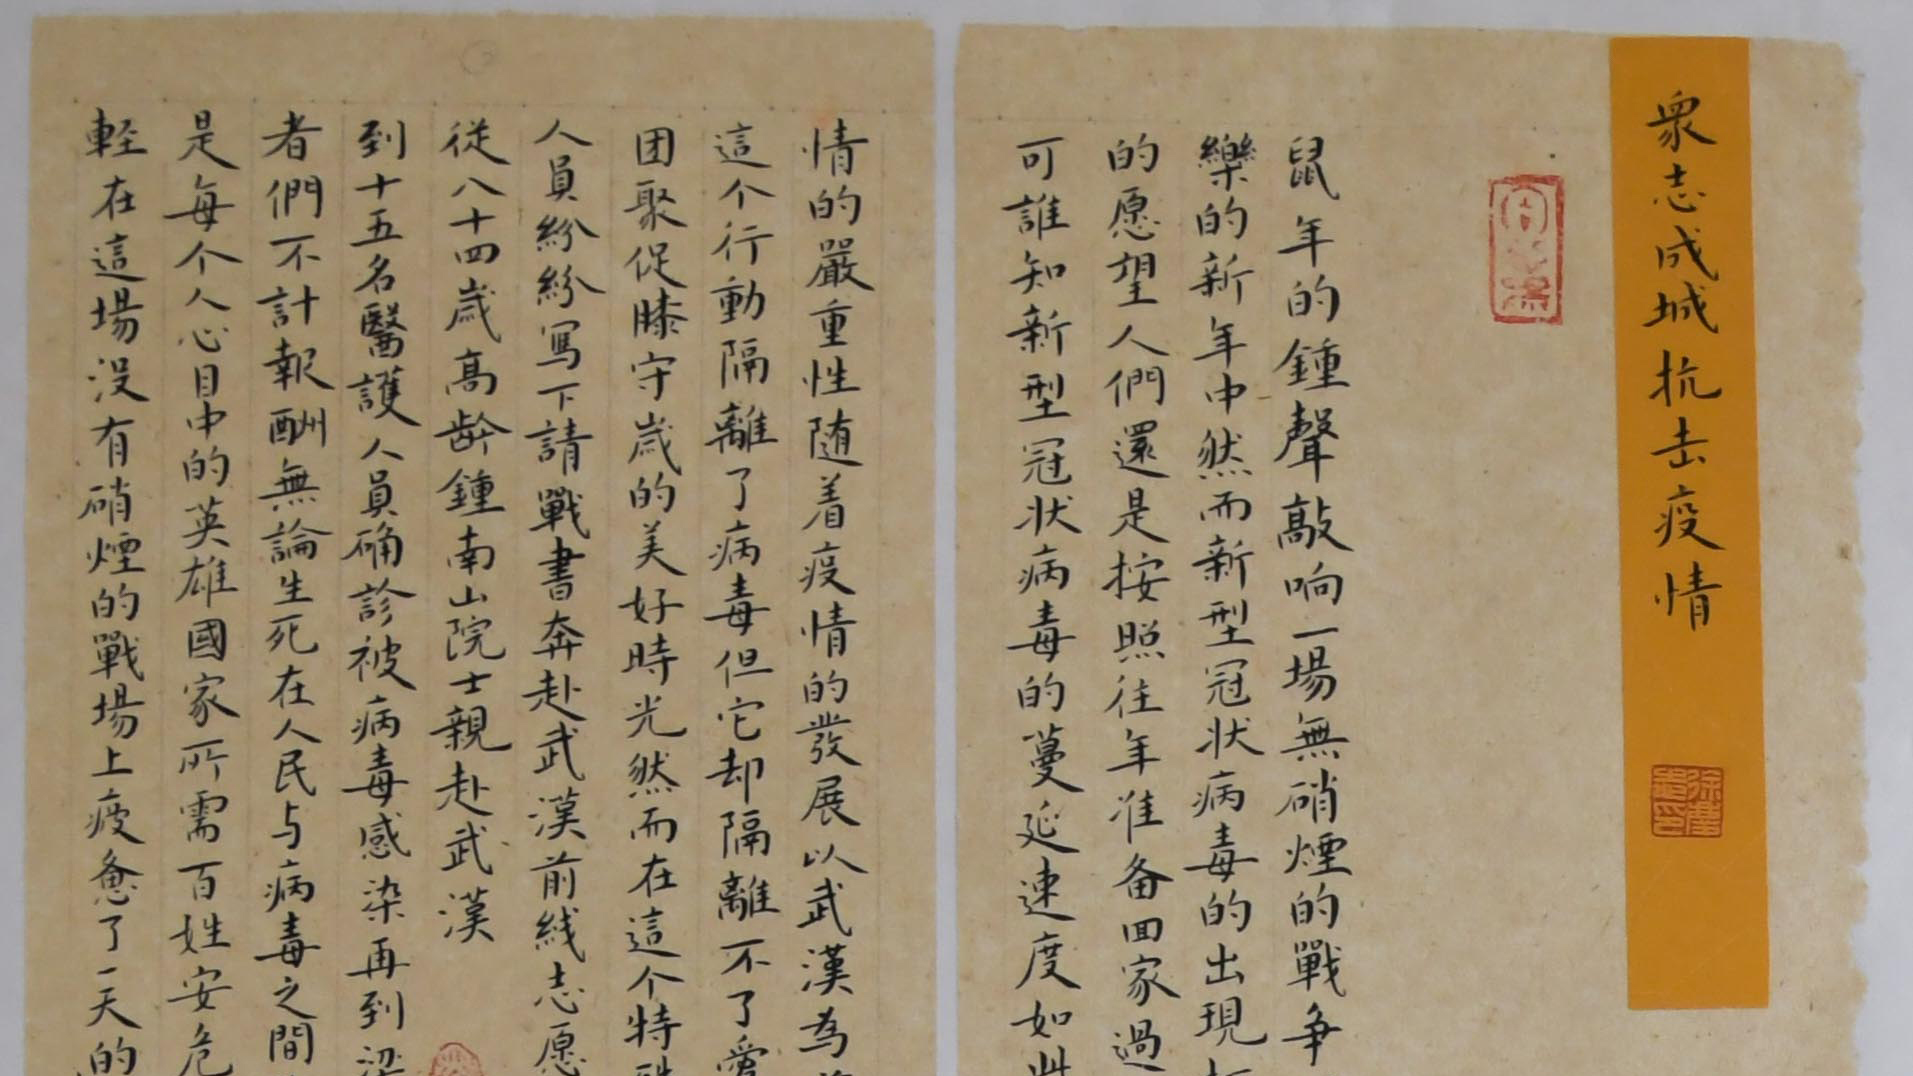 衆志成城抗击疫情
鼠年的鍾聲敲响一場無硝煙的戰争
樂的新年中然而新型冠状病毒的出現
的愿望人們還是按照往年准备回家過
可誰知新型冠状病毒的蔓延速度如此
情的嚴重性随着疫情的發展以武漢為
這个行動隔離了病毒但它却隔離不了愛
团聚促膝守歲的美好時光然而在這个特殊
人員紛紛写下請戰書奔赴武漢前线志愿
從八十四歲高龄鍾南山院士親赴武漢
到十五名醫護人員确診被病毒感染再到梁
者們不計報酬無論生死在人民与病毒之間
是每个人心目中的英雄國家所需百姓安危
軽在這場没有硝煙的戰場上疲惫了一天的